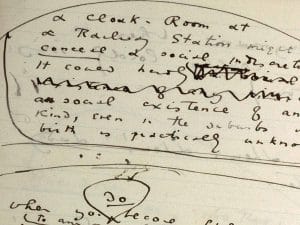 a cloak-Room at
a Railway Station might
conceal a social indiscretio
It could hardly
a social existence of an
kind, even in the suburbs
birth is practically unkno
Do
when you become
To